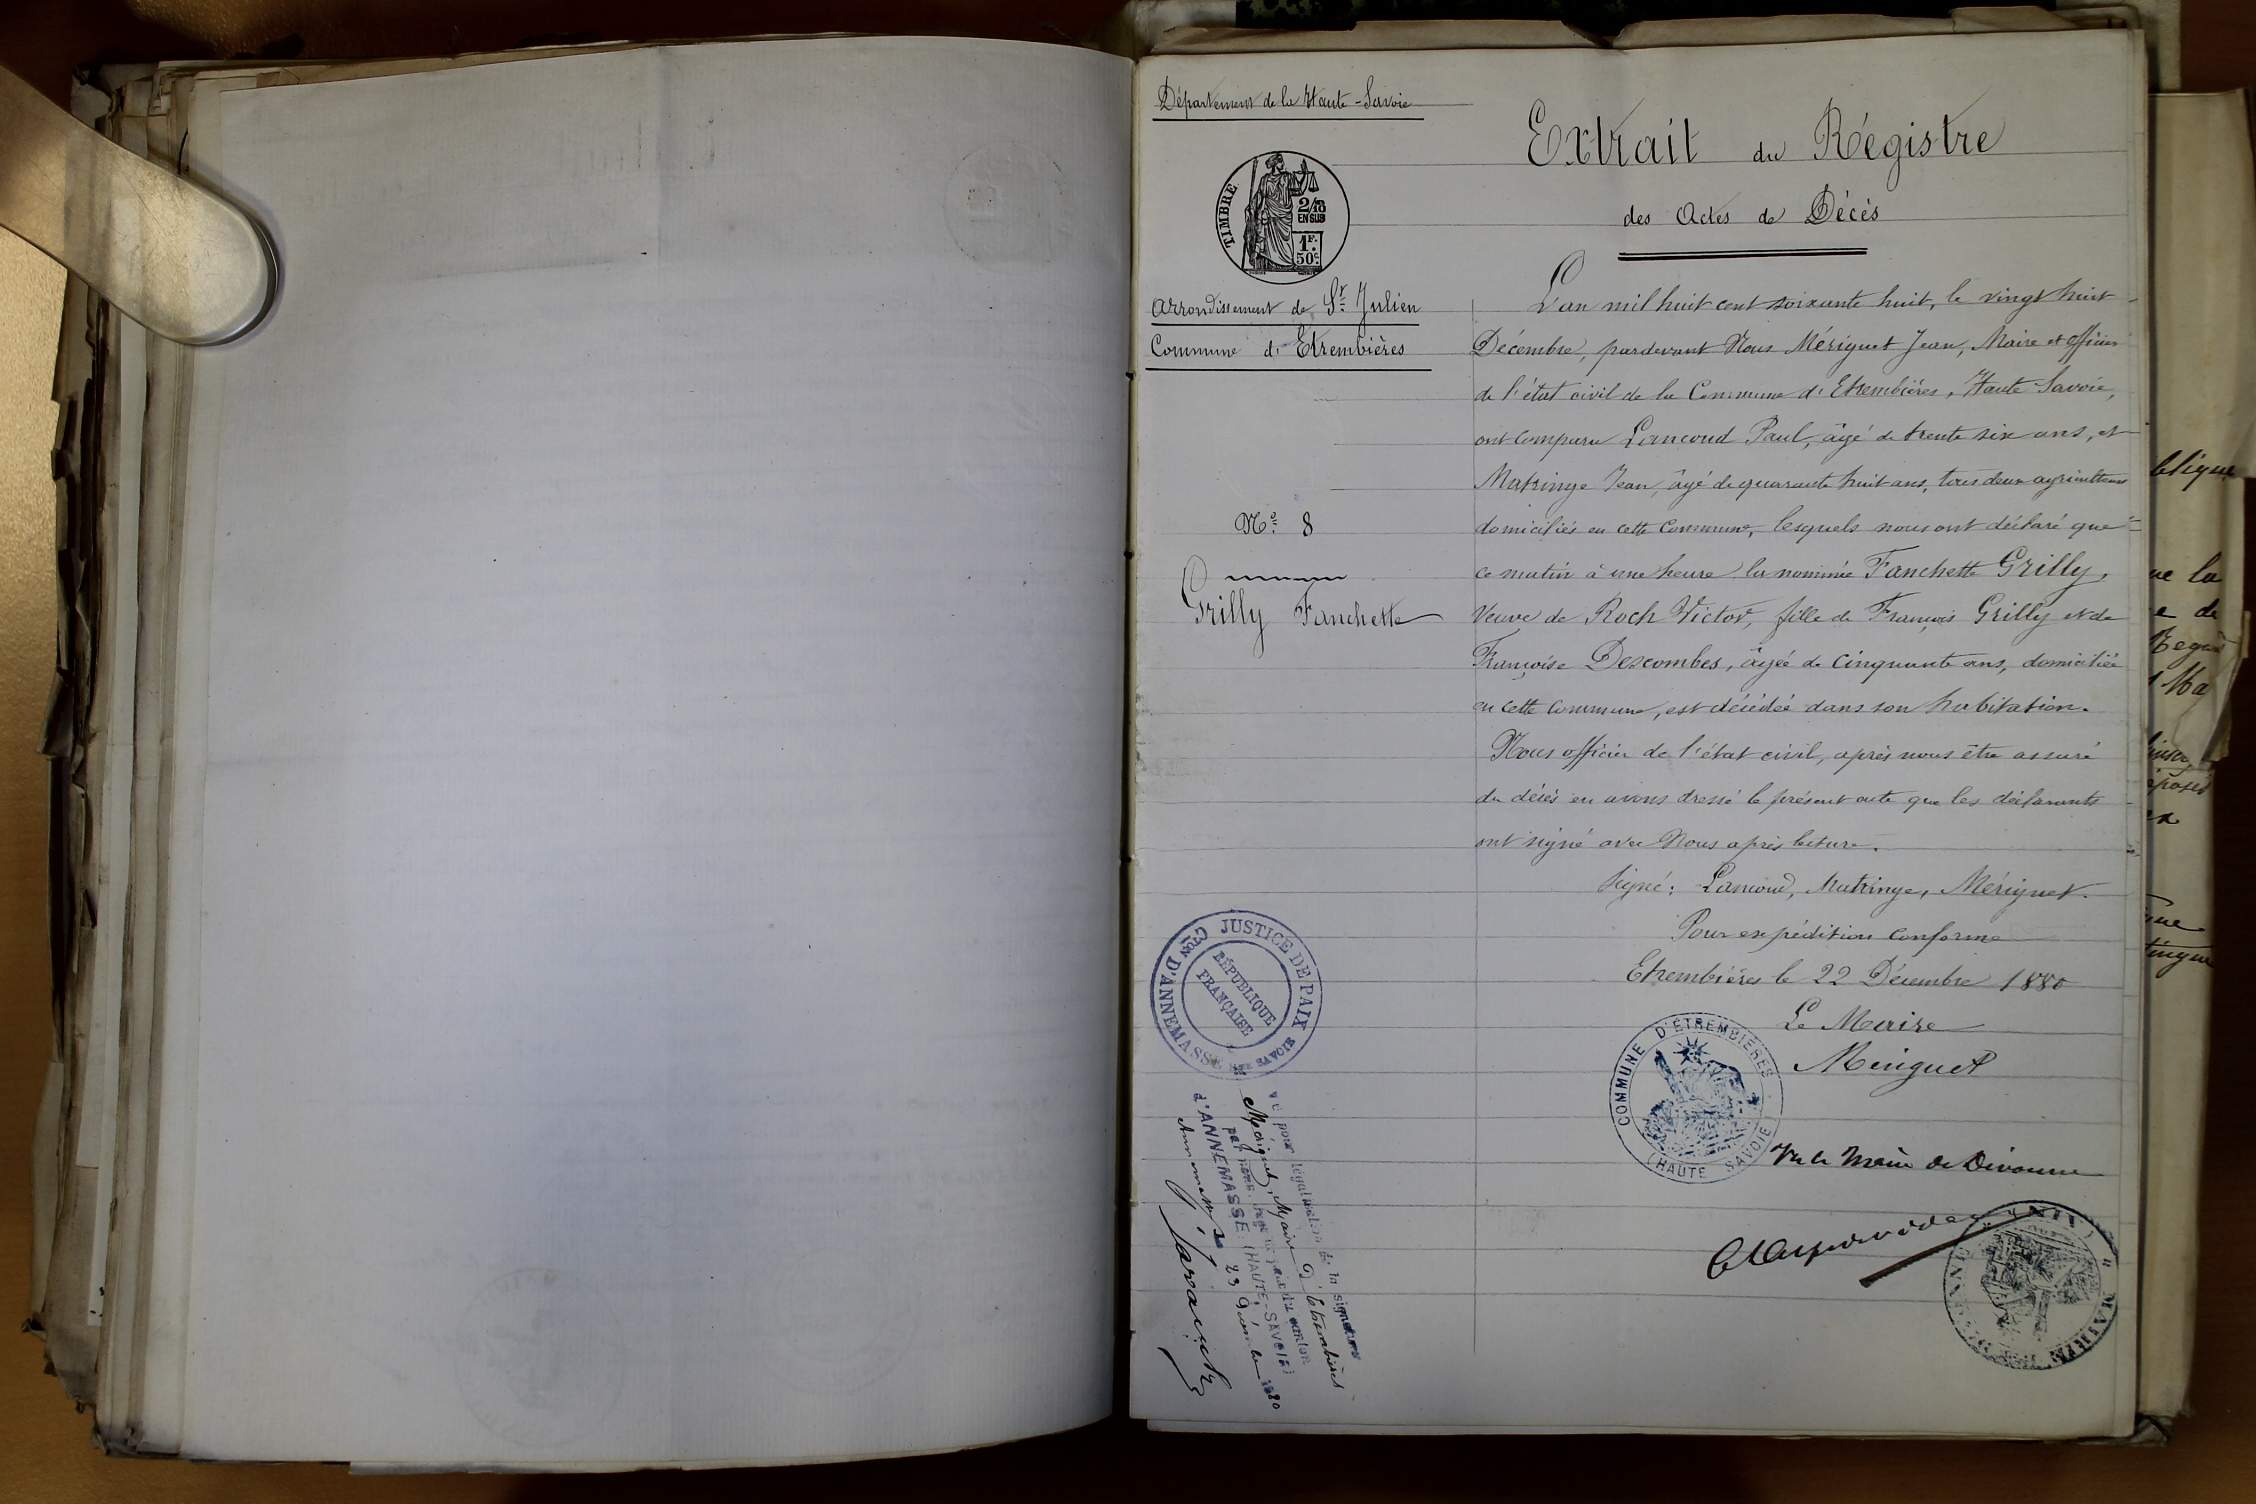 Département de la Haute-Savoie
TIMBRE
2/10
EN SUS
1F.
50c.
Arrondissement de St Julien
Commune d'Etrembières
No 8
Grilly Fanchette
Extrait du Régistre
des Actes de Décès
L'an mil huit cent soixante huit, le vingt huit
Décembre, pardevant Nous Mériguet Jean, Maire et officier
de l'état civil de la Commune d'Etrembières, Haute Savoie,
ont comparu Lancoud Paul, âgé de trente six ans, et
Matringe Jean, âgé de quarante huit ans, tous deux agriculteurs
domiciliés en cette Commune, lesquels nous ont déclaré que
ce matin à une heure la nommée Fanchette Grilly,
Veuve de Roch Victor, fille de François Grilly et de
Françoise Descombes, âgée de cinquante ans, domiciliée
en cette commune, est décédée dans son habitation.
Nous officier de l'état civil, après nous être assuré
du décès en avons dressé le présent acte que les déclarants
ont signé avec Nous après lecture.
Signé: Lancoud, Matringe, Mériguet.
Pour expédition conforme
Etrembières le 22 Décembre 1880
Le Maire
Meriguet
COMMUNE D'ÉTREMBIÈRES
(HAUTE SAVOIE)
Vu le Maire de Divonne
MAIRIE
(AIN)
JUSTICE DE PAIX
Cton D'ANNEMASSE
Hte SAVOIE
RÉPUBLIQUE
FRANÇAISE
Vu pour légalisation de la signature
Mériguet, Maire d'Etrembières
par nous, Juge de paix du canton
d'ANNEMASSE (HAUTE-SAVOIE)
Annemasse le 23 Décembre 1880
blique
ue la
e de